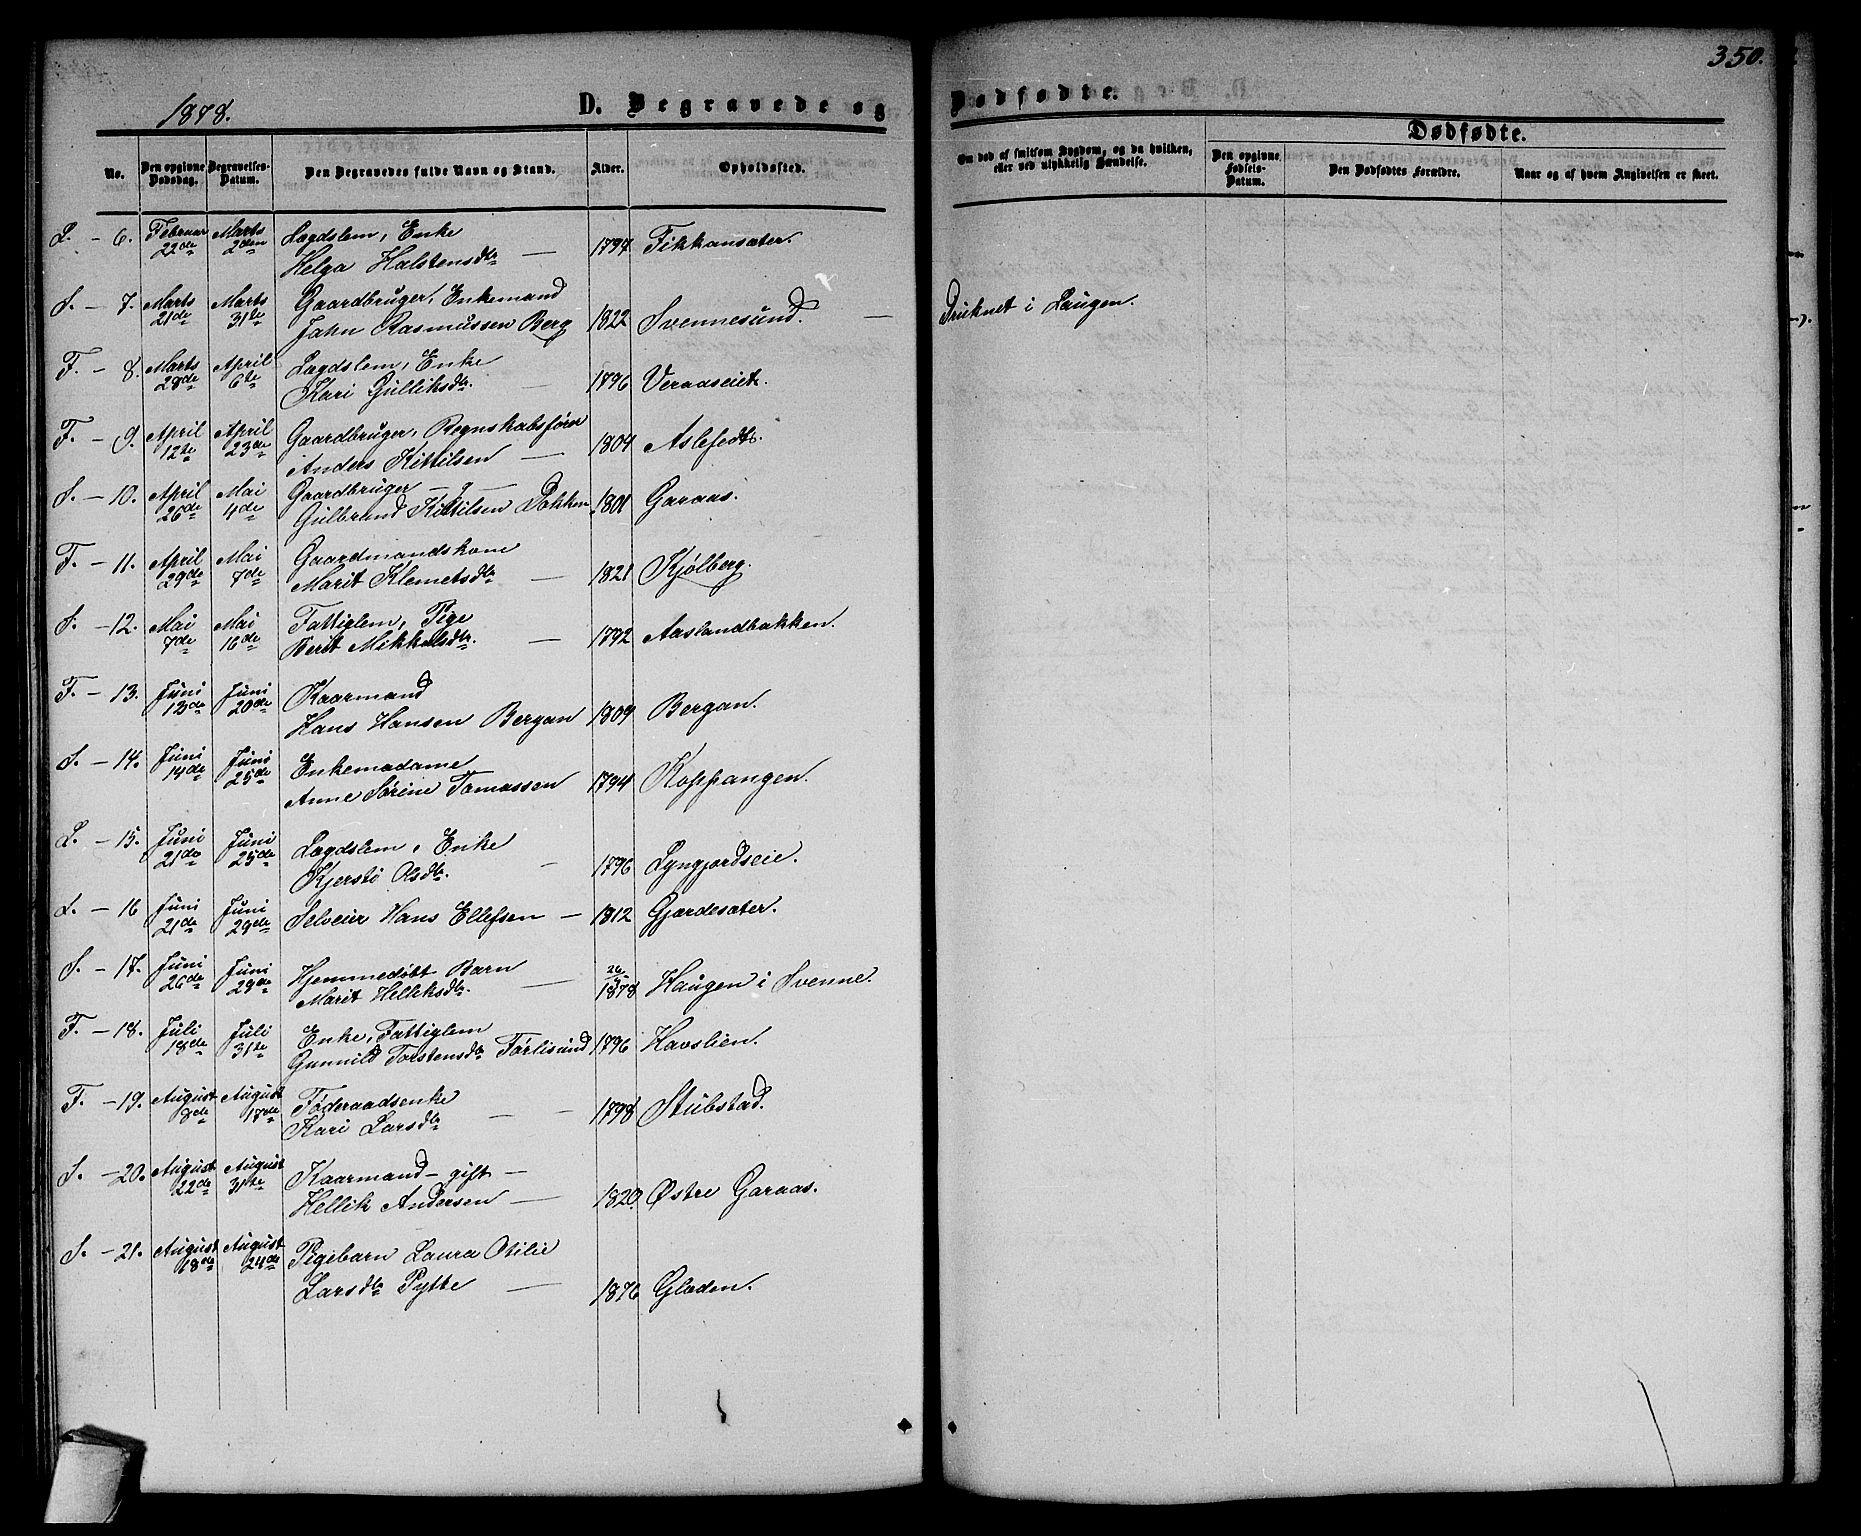 350.
1878.
D. Begravede og Dødfødte.
Dødfødte.
No.
Den opgivne Dødsdag.
Begravelses-Datum.
Den Begravedes fulde Navn og Stand.
Alder.
Opholdssted.
Om død af smitsom Sygdom, og da hvilken, eller ved ulykkelig Hændelse.
Den opgivne Fødsels-Datum.
Den Dødfødtes Forældre.
Naar og af hvem Angivelsen er skeet.
L. – 6. Februar 22de Marts 2den Lægdslem, Enke
Helga Halstensdtr — 1794 Fikkansæter.
S. – 7. Marts 21de Marts 31te Gaardbruger, Enkemand
Jahn Rasmussen Berg 1822 Svennesund. — Druknet i Laugen.
F. – 8. Marts 28de April 6te Lægdslem, Enke
Kari Gulliksdtr. — 1796 Veraaseiet.
F. – 9. April 12te April 23de Gaardbruger, Regnskabsfører
Anders Kittilsen — 1804 Aslefedt.
S. – 10. April 26de Mai 4de Gaardbruger
Gulbrand Kittilsen Dokken 1801 Garaas.
F. – 11. April 29de Mai 7de Gaardmandskone
Marit Klemetsdtr — 1821 Kjølberg.
S. – 12. Mai 7de Mai 16de Fattiglem, Pige
Berit Mikkelsdtr. — 1792 Aaslandbakken.
F. – 13. Juni 13de Juni 20de Kaarmand
Hans Hansen Bergan 1809 Bergan.
S. – 14. Juni 14de Juni 25de Enkemadame
Anne Sørine Tomassen 1794 Koppangen.
L. – 15. Juni 21de Juni 25de Lægdslem, Enke
Kjersti Olsdtr. — 1796 Lyngjordseie.
L. – 16 Juni 21de Juni 29de Selveier Hans Ellefsen — 1812 Gjærdesæter.
S. – 17. Juni 26de Juni 29de Hjemmedøbt Barn
Marit Helliksdtr. — 1878 Haugen i Svenne.
F. – 18. Juli 18de Juli 31te Enke, Fattiglem
Gunnild Torstensdtr Førlisund 1796 Havslien.
F. – 19. August 8de August 17de Føderaadsenke
Kari Larsdtr — — 1798 Stubstad.
S. – 20. August 22de August 31te Kaarmand – gift –
Hellik Andersen — 1820. Østre Garaas.
S. – 21. August 18de August 24de Pigebarn Laura Otilie
Larsdtr Pytte — 1876 Glæden.